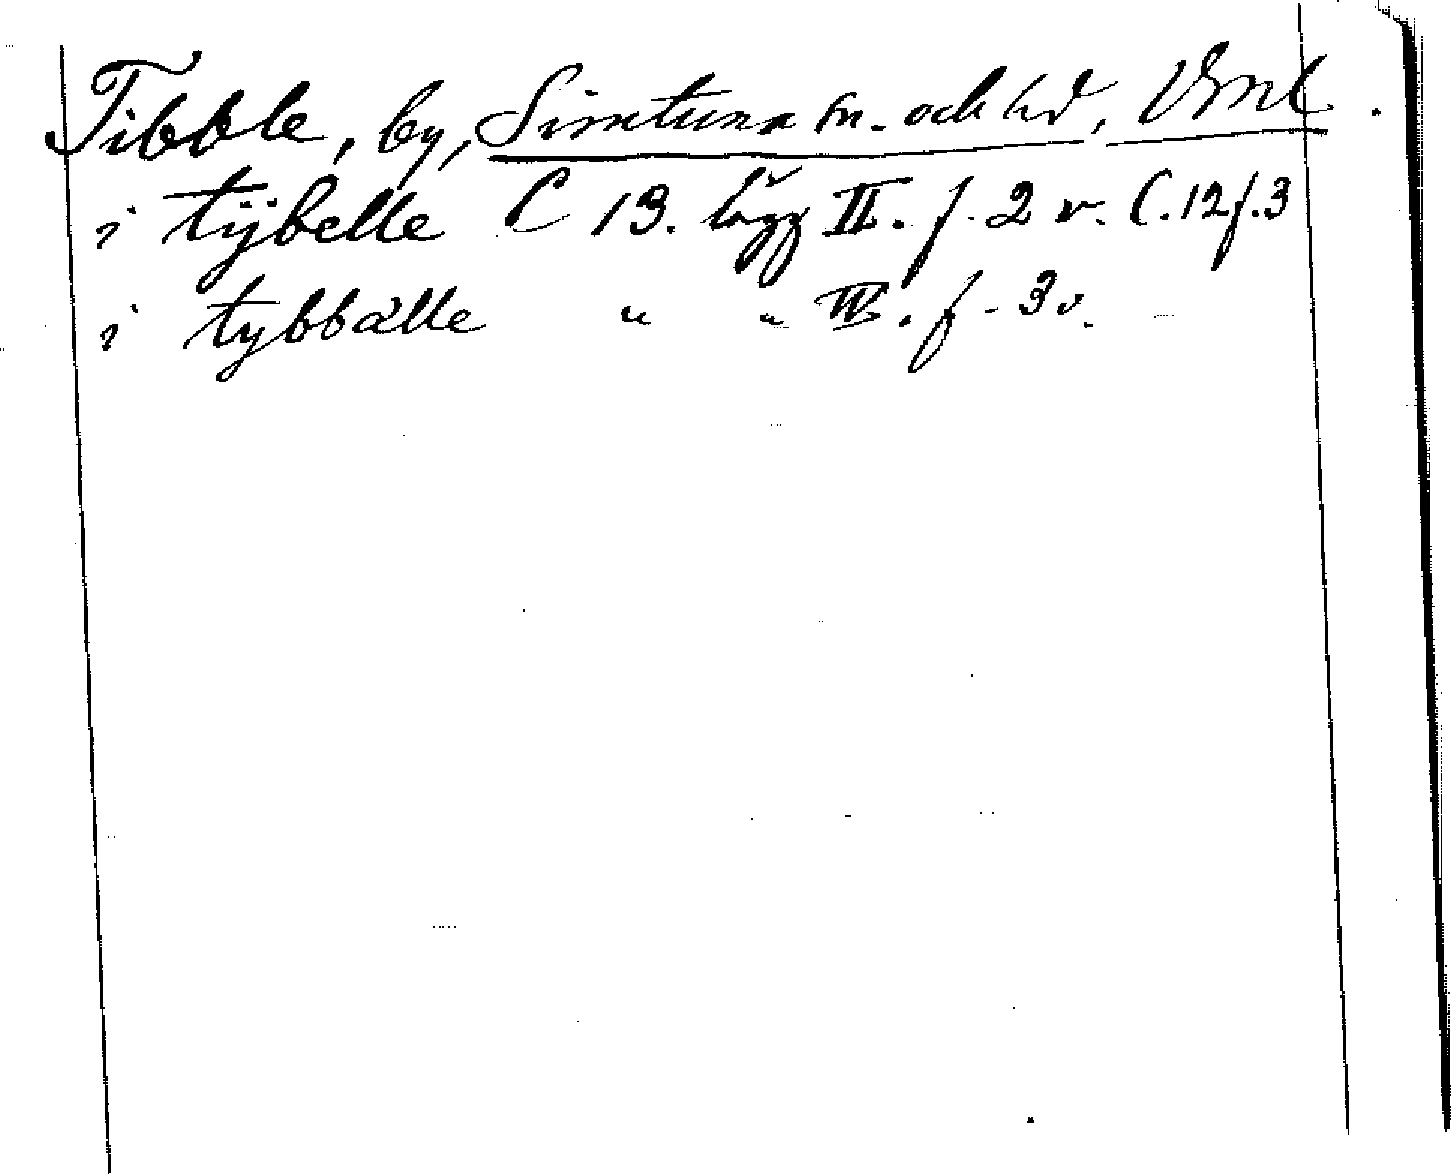 Tibble, by, Simtuna sn. och hd, Vml.
i tÿbelle C 13. lägg II. f. 2 v. C.12 f.3
i tybbälle " " IV. f. 3 v.